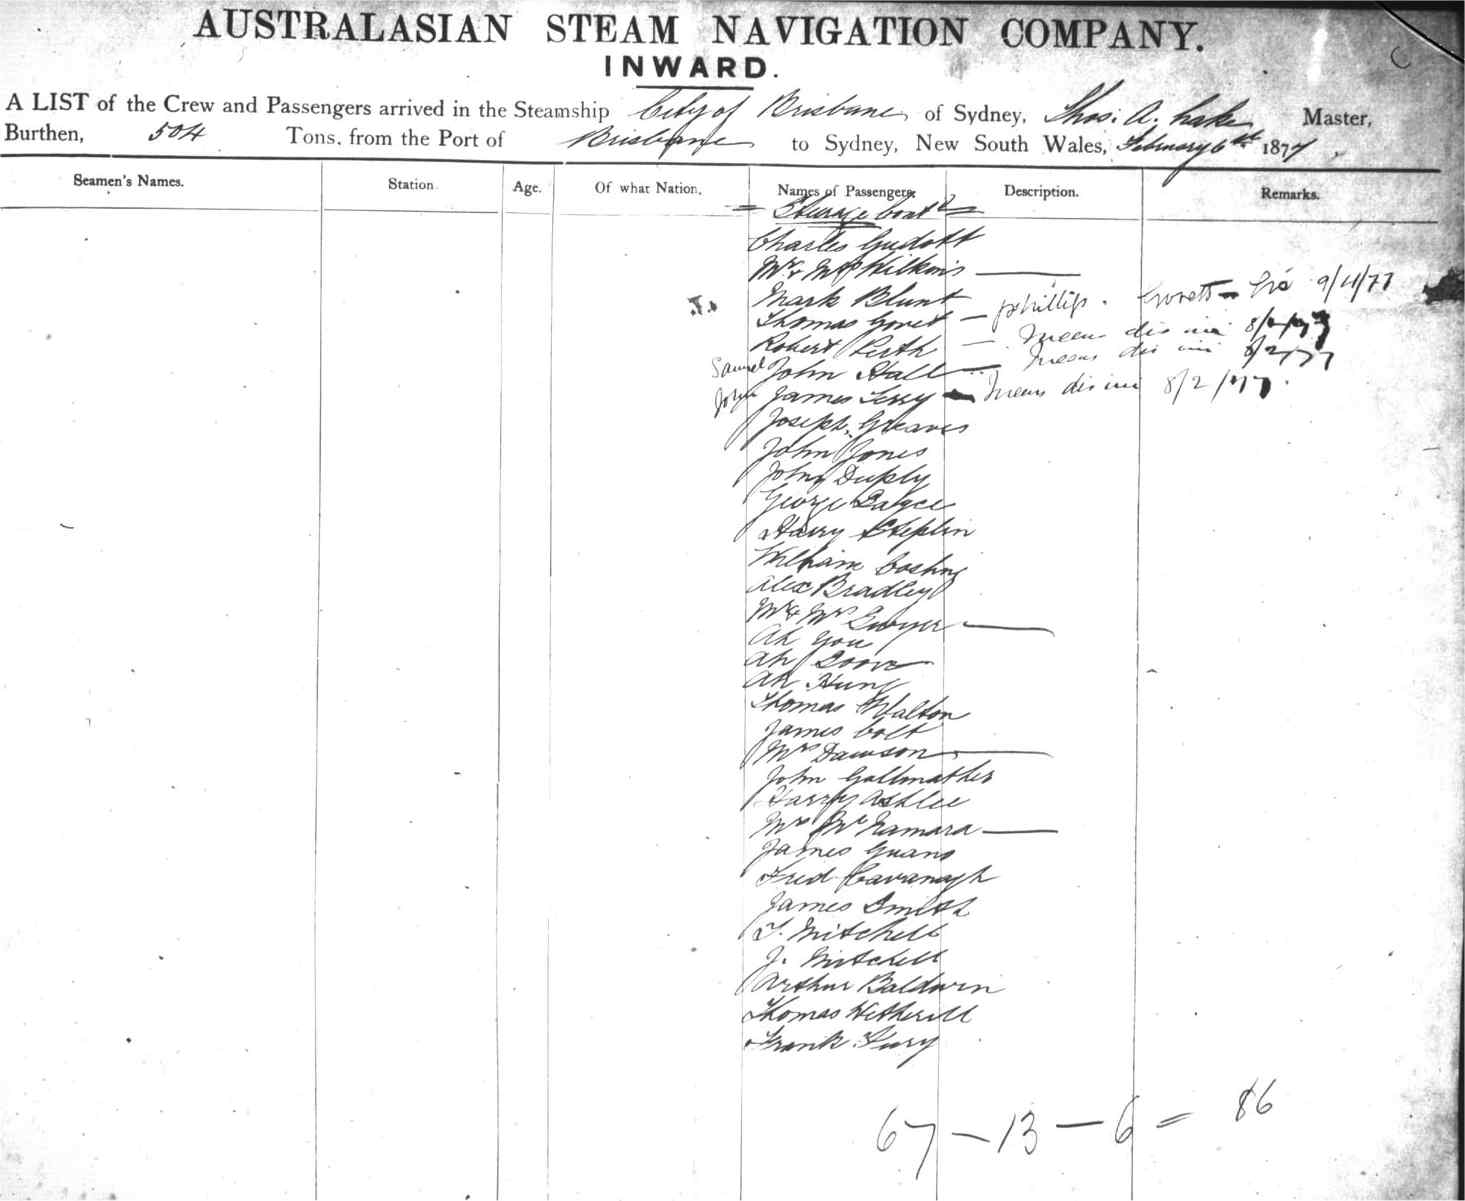 AUSTRALASIAN STEAM NAVIGATION COMPANY.
INWARD.
A LIST of the Crew and Passengers arrived in the Steamship City of Brisbane of Sydney, Thos. A. Lake Master,
Burthen, 504 Tons, from the Port of Brisbane to Sydney, New South Wales, February 6th 1877.
Seamen's Names. Station. Age. Of what Nation. Names of Passengers. Description. Remarks.
Steerage Contd
Charles
Mr & Mrs Wilkins
Mark Blunt
Thomas — Phillip. 9/4/77
Robert Perth —
Samuel John Hall — 8/2/77
John James Terry — 8/2/77.
Joseph Greaves
John Jones
John
George
Harry
William
Alex Bradley
Mr & Mrs Gwyer
Ah You
Ah
Ah Hung
Thomas Walton
James Colt
Mrs Dawson
John
Harry Ashlee
Mrs McNamara
James
Fred Cavanagh
James Smith
T. Mitchell
J. Mitchell
Arthur Baldwin
Thomas Hetherill
Frank
67 — 13 — 6 = 86